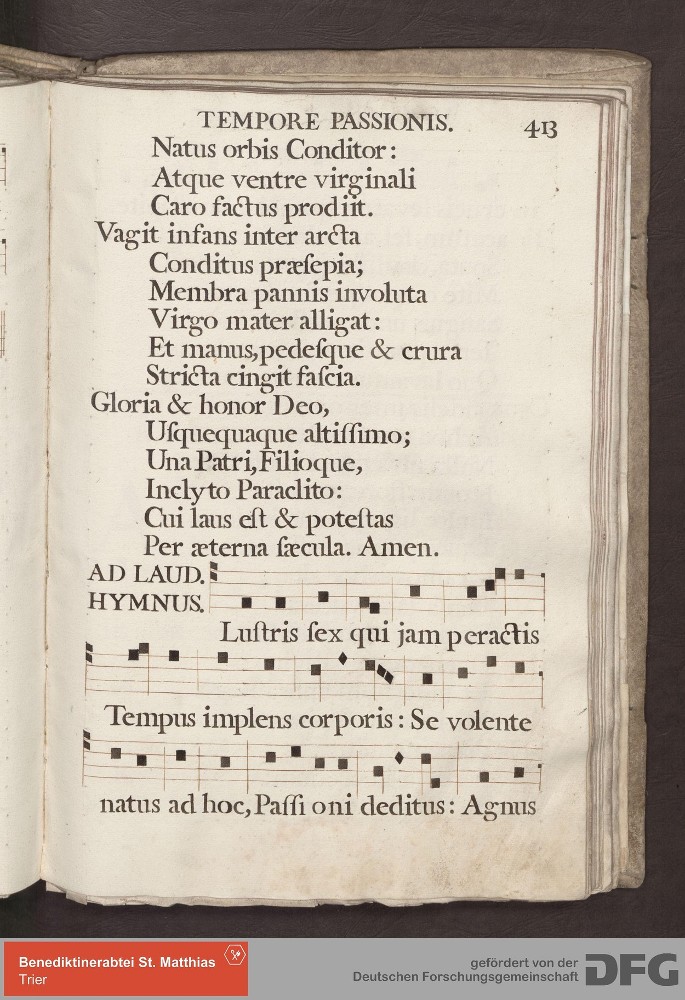 TEMPORE PASSIONIS. 413
Natus orbis Conditor:
Atque ventre virginali
Caro factus prodiit.
Vagit infans inter arcta
Conditus præſepia;
Membra pannis involuta
Virgo mater alligat:
Et manus, pedeſque & crura
Stricta cingit faſcia.
Gloria & honor Deo,
Uſquequaque altiſſimo;
Una Patri, Filioque,
Inclyto Paraclito:
Cui laus eſt & poteſtas
Per æterna ſæcula. Amen.
AD LAUD.
HYMNUS.
Luſtris ſex qui jam peractis
Tempus implens corporis: Se volente
natus ad hoc, Paſſi oni deditus: Agnus
Benediktinerabtei St. Matthias
Trier
gefördert von der
Deutschen Forschungsgemeinschaft
DFG